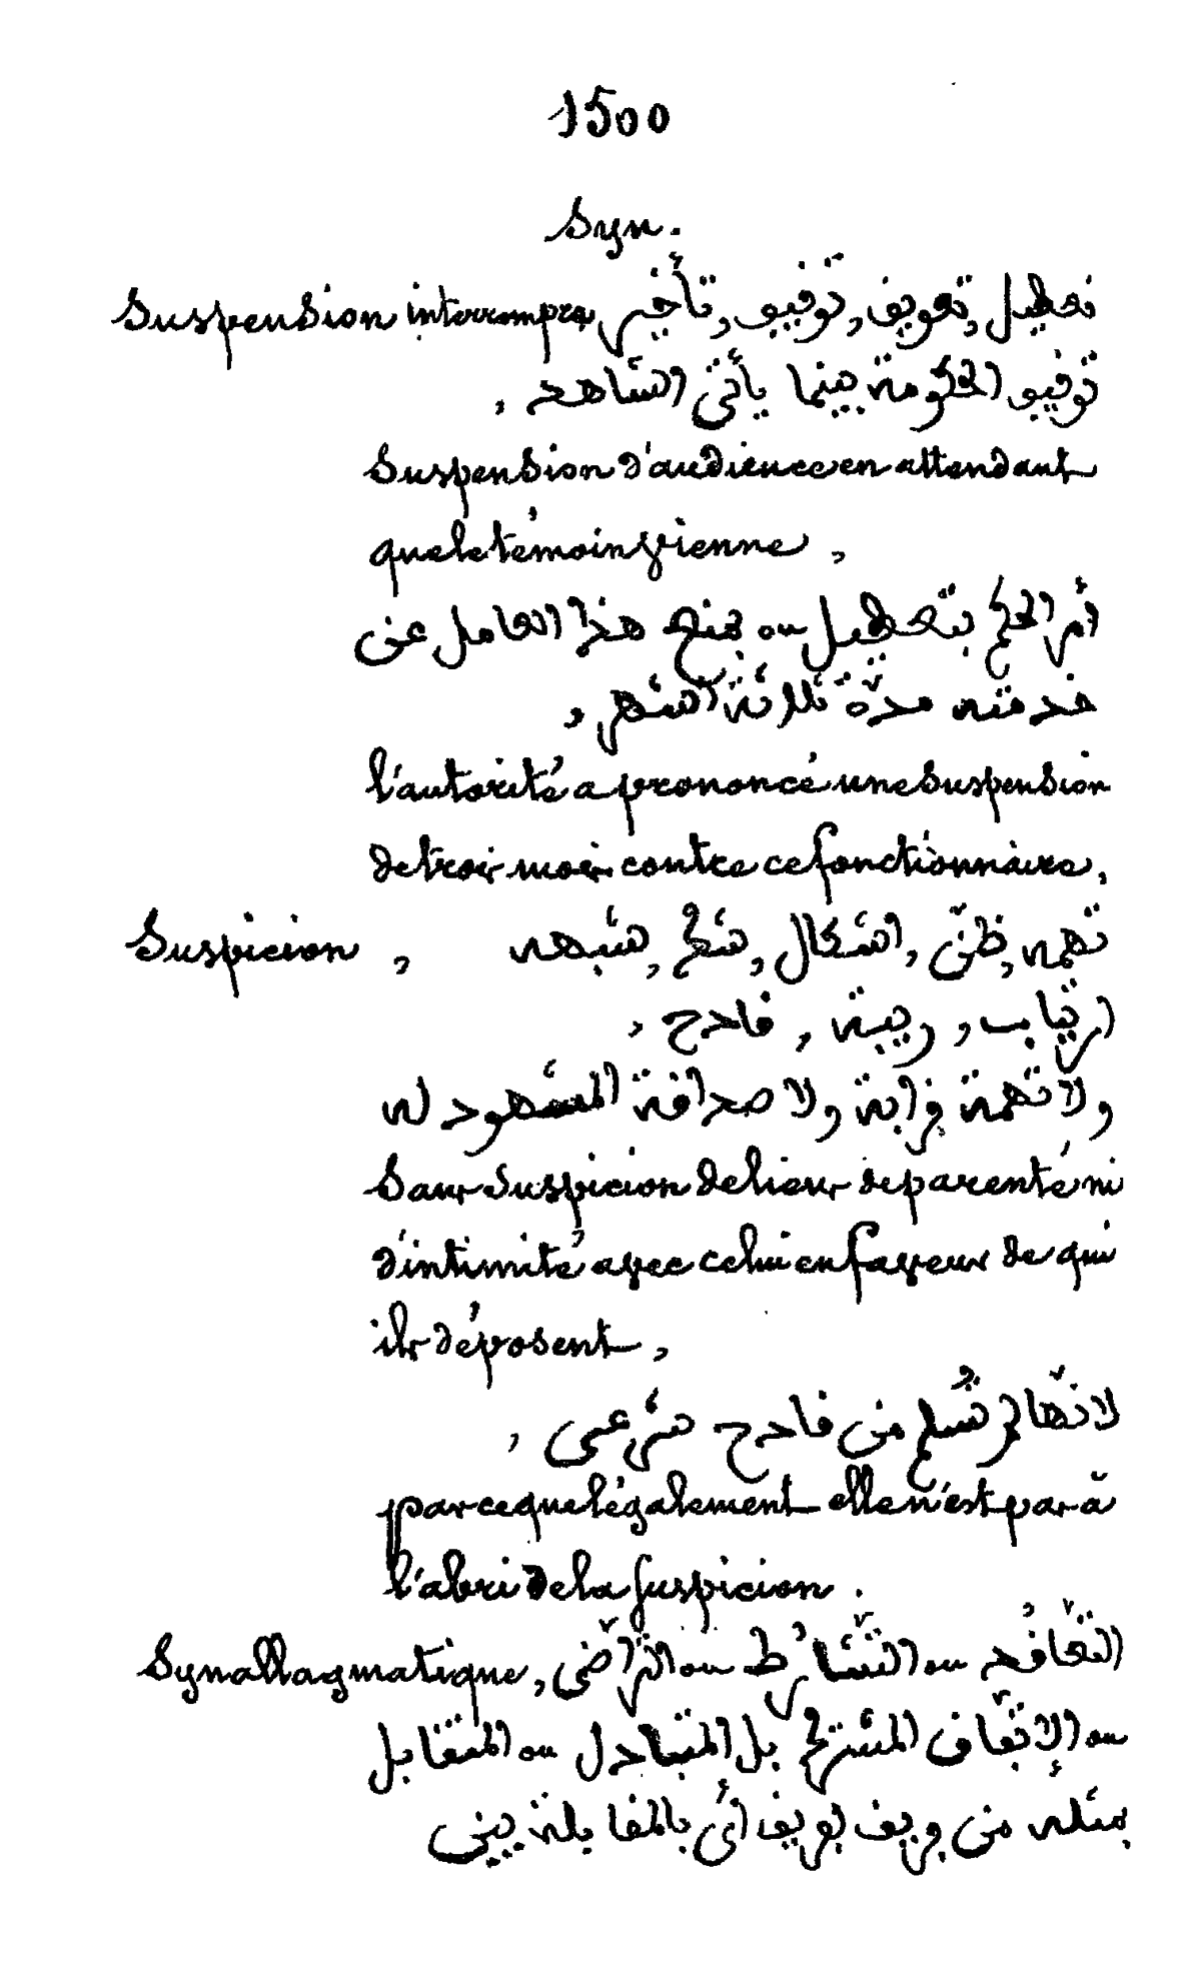 1500
Syn.
Suspension interrompre, تعطيل, تعويف, توفيف, تأخير
توفيف الحكومة بينما يأتى الشاهد,
Suspension d'audience en attendant
que le témoin vienne,
أمر الحكم بتعطيل ou بمنع هذا العامل عن
خدمته مدّة ثلاثة اشهر,
l'autorité a prononcé une suspension
de trois mois contre ce fonctionnaire,
Suspicion, تهمه, ظنّ, اشكال, شكّ, شبهه
ارتياب, ريبة, فادح,
ولا تهمة فرابة ولا صدافة المشهود له
Sans suspicion de liens de parenté ni
d'intimité avec celui en faveur de qui
ils déposent,
لانّها لم تسلم من فادح شرعى,
parce que légalement elle n'est pas à
l'abri de la suspicion.
Synallagmatique, التعافُد ou التّشارُط ou التّراضى
ou الإتّفاف المشترك بل المتبادل ou المتفابل
بمثله من فريف لفريف أى بالمفابلة بين